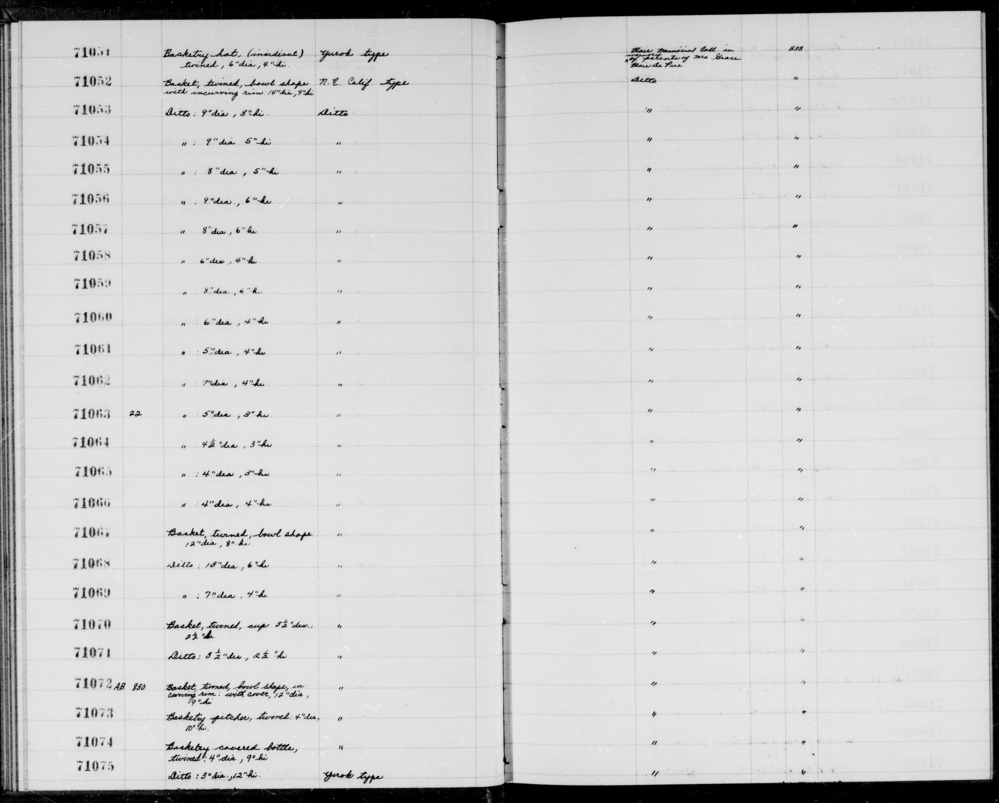 71051 Basketry hat, (incidiant) Yurok type Heir Memorial Coll in 838
twined, 6" dia, 4" hi. memory of parents of Mrs Grace
Heir De Pue
71052 Basket, twined, bowl shape N.E. Calif. type Ditto "
with incurving rim 14" dia, 9" hi
71053 Ditto: 9" dia, 8" hi. Ditto " "
71054 " : 9" dia 5" hi " " "
71055 " : 8" dia, 5" hi " " "
71056 " : 9" dia., 6" hi " " "
71057 " 8" dia, 6" hi " " "
71058 " 6" dia, 4" hi " " "
71059 " : 8" dia, 6" hi. " " "
71060 " : 6" dia, 4" hi " " "
71061 " : 5" dia, 4" hi " " "
71062 " : 7" dia, 4" hi " " "
71063 22 " 5" dia, 3" hi " " "
71064 " 4½" dia, 3" hi " " "
71065 " : 4" dia, 3" hi " " "
71066 " : 4" dia, 4" hi " " "
71067 Basket, twined, bowl shape " " "
12" dia, 8" hi
71068 Ditto: 10" dia, 6" hi " " "
71069 " : 7" dia. 4" hi " " "
71070 Basket, twined, cup 3½" dia. " " "
2½" hi
71071 Ditto: 3½" dia, 2½" hi " " "
71072 AB 880 Basket, twined, bowl shape, in " " "
curving rim: with cover, 12" dia,
19" hi
71073 Basketry pitcher, twined 4" dia, " " "
10" hi.
71074 Basketry covered bottle, " " "
twined: 4" dia, 9" hi
71075 Ditto: 3" dia., 12" hi. Yurok type " "